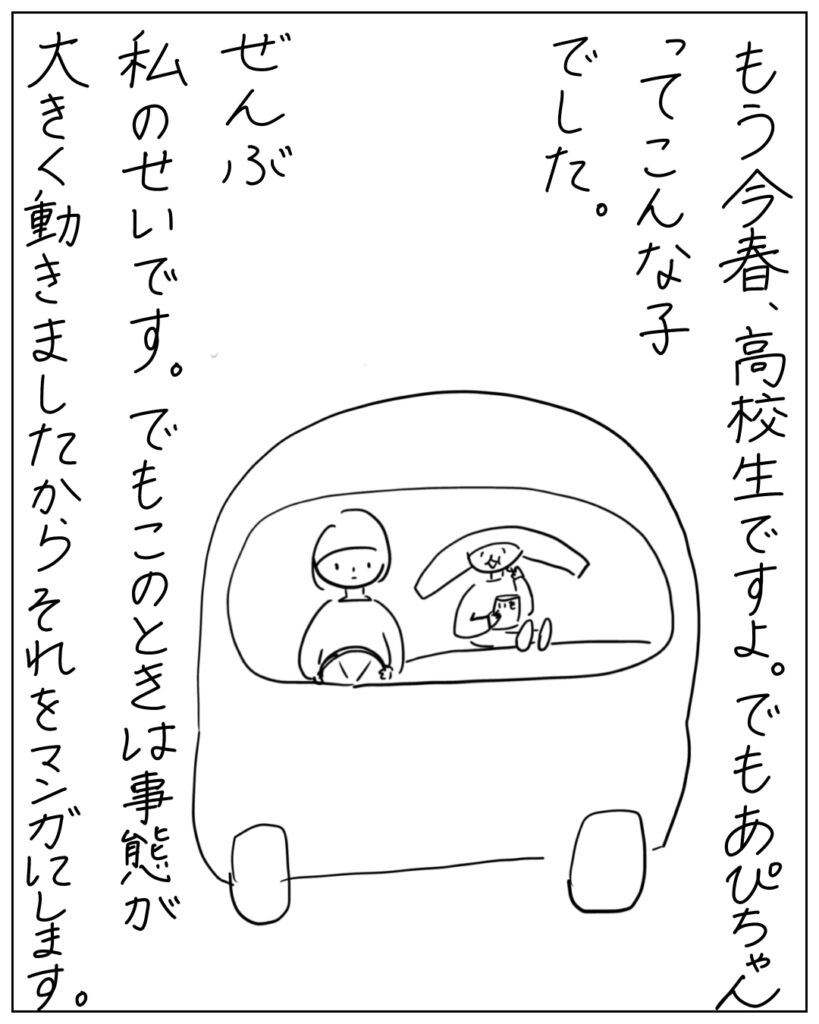 もう今春、高校生ですよ。でもあぴちゃん
ってこんな子
でした。
ぜんぶ
私のせいです。でもこのときは事態が
大きく動きましたからそれをマンガにします。